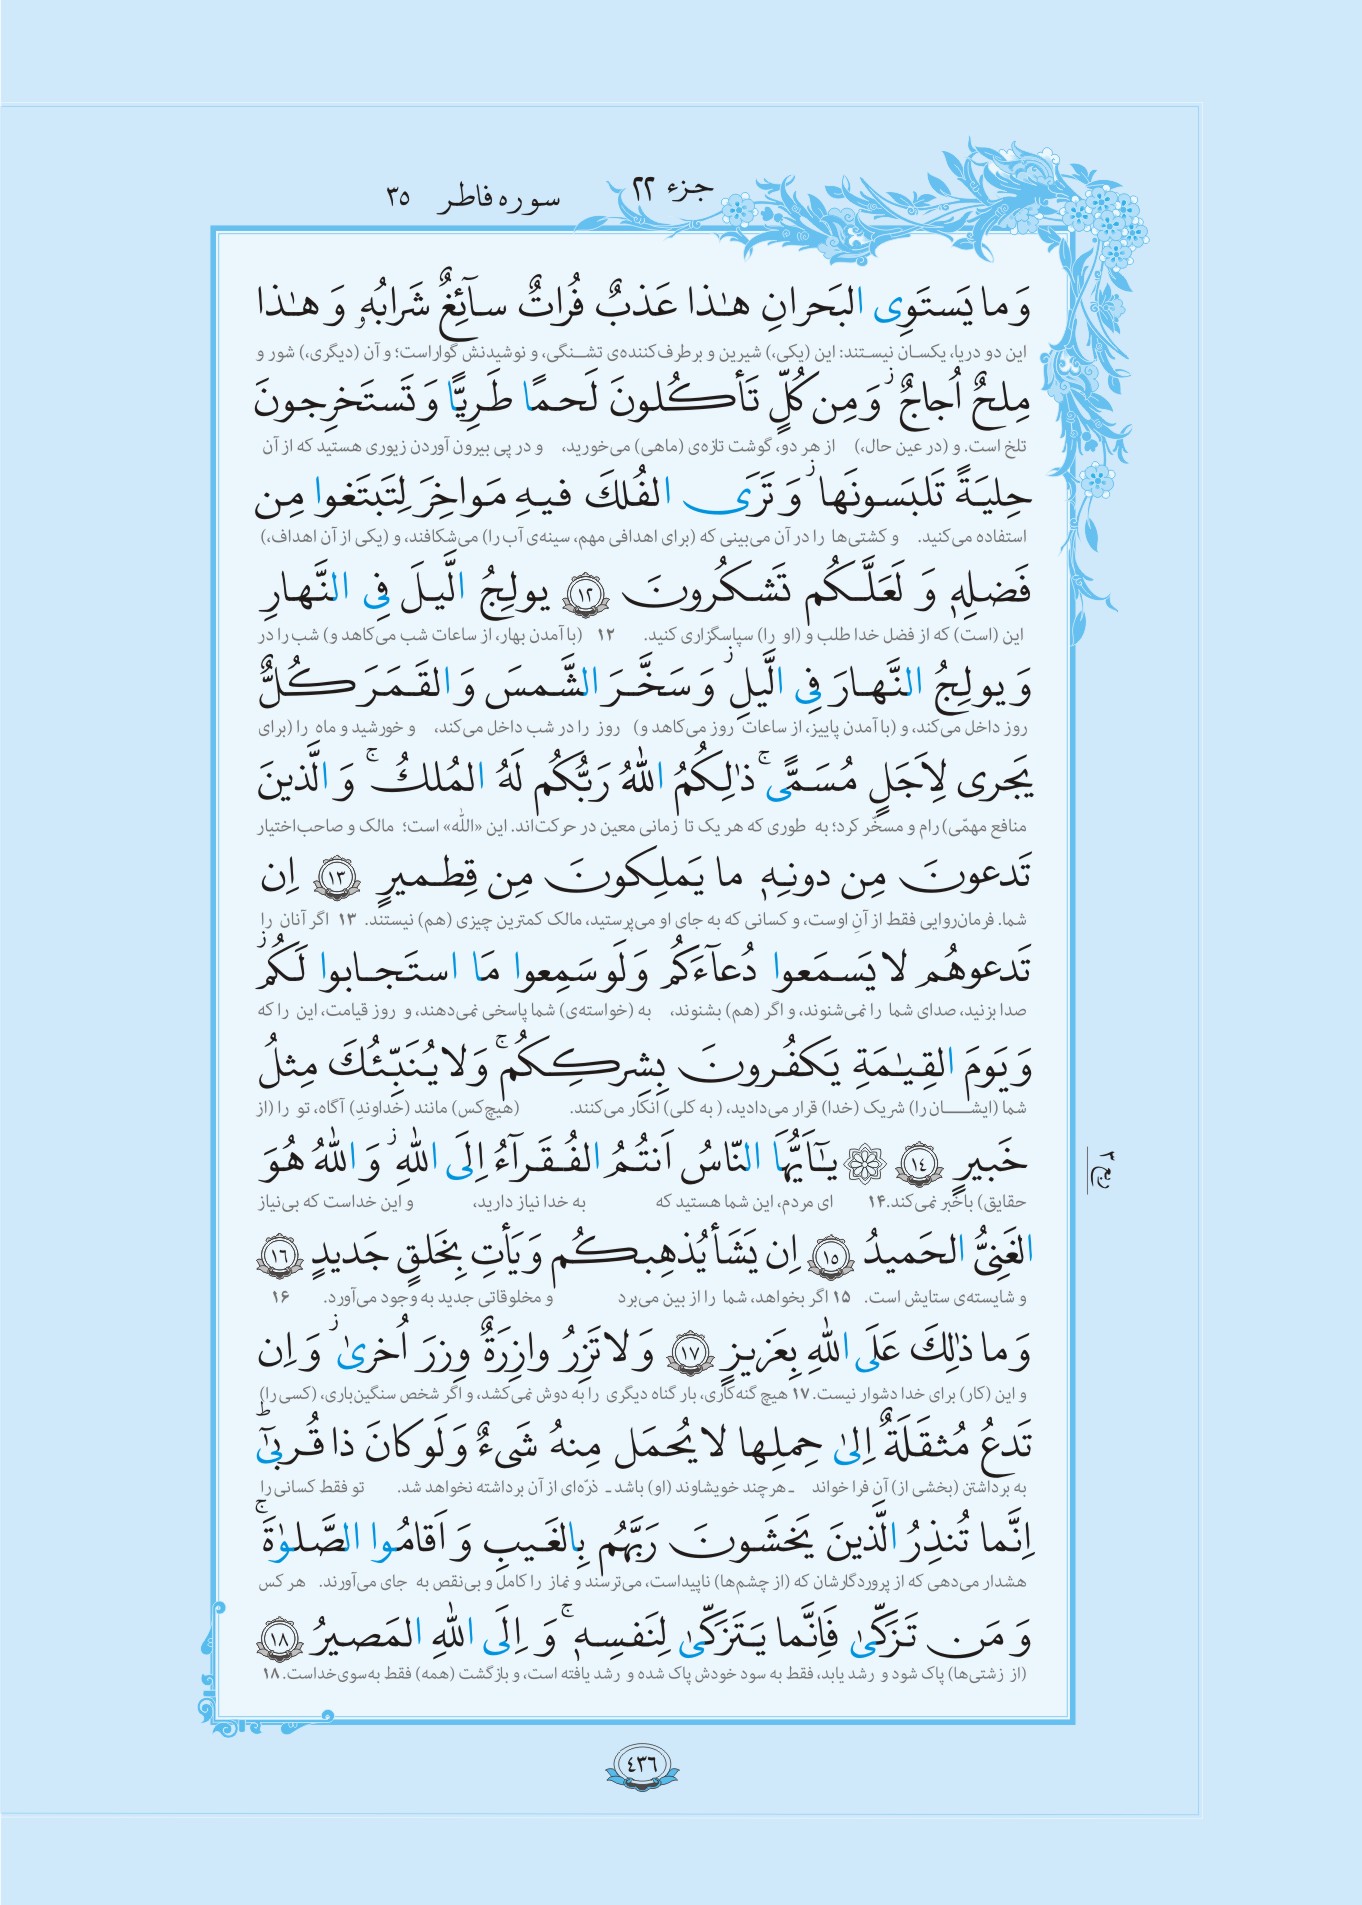 جزء ۲۲
سوره فاطر ۳۵
وَ ما يَستَوِى البَحرانِ هـٰذا عَذبٌ فُراتٌ سآئِغٌ شَرابُهٗ وَ هـٰذا
این دو دریا، یکسان نیستند: این (یکی،) شیرین و برطرف‌کننده‌ی تشنگی، و نوشیدنش گواراست؛ و آن (دیگری،) شور و
مِلحٌ اُجاجٌ ۖ وَ مِن كُلٍّ تَأكُلونَ لَحمًا طَرِيًّا وَ تَستَخرِجونَ
تلخ است. و (در عین حال،) از هر دو، گوشت تازه‌ی (ماهی) می‌خورید، و در پی بیرون آوردن زیوری هستید که از آن
حِليَةً تَلبَسونَها ز وَ تَرَى الفُلكَ فيهِ مَواخِرَ لِتَبتَغوا مِن
استفاده می‌کنید. و کشتی‌ها را در آن می‌بینی که (برای اهدافی مهم، سینه‌ی آب را) می‌شکافند، و (یکی از آن اهداف،)
فَضلِهٖ وَ لَعَلَّكُم تَشكُرونَ ١٢ يولِجُ الَّيلَ فِى النَّهارِ
این (است) که از فضل خدا طلب و (او را) سپاسگزاری کنید. ۱۲ (با آمدن بهار، از ساعات شب می‌کاهد و) شب را در
وَ يولِجُ النَّهارَ فِى الَّيلِ ز وَ سَخَّرَ الشَّمسَ وَ القَمَرَ كُلٌّ
روز داخل می‌کند، و (با آمدن پاییز، از ساعات روز می‌کاهد و) روز را در شب داخل می‌کند، و خورشید و ماه را (برای
يَجرى لِاَجَلٍ مُسَمًّى ۚ ذٰلِكُمُ اللّٰهُ رَبُّكُم لَهُ المُلكُ ۚ وَ الَّذينَ
منافع مهمّی) رام و مسخّر کرد؛ به طوری که هر یک تا زمانی معین در حرکت‌اند. این «اللّه» است؛ مالک و صاحب‌اختیار
تَدعونَ مِن دونِهٖ ما يَملِكونَ مِن قِطميرٍ ١٣ اِن
شما. فرمان‌روایی فقط از آنِ اوست، و کسانی که به جای او می‌پرستید، مالک کمترین چیزی (هم) نیستند. ۱۳ اگر آنان را
تَدعوهُم لا يَسمَعوا دُعآءَكُم وَ لَو سَمِعوا مَا استَجابوا لَكُم ز
صدا بزنید، صدای شما را نمی‌شنوند، و اگر (هم) بشنوند، به (خواسته‌ی) شما پاسخی نمی‌دهند، و روز قیامت، این را که
وَ يَومَ القِيـٰمَةِ يَكفُرونَ بِشِركِكُم ۚ وَ لا يُنَبِّئُكَ مِثلُ
شما (ایشان را) شریک (خدا) قرار می‌دادید، (به کلی) انکار می‌کنند. (هیچ‌کس) مانند (خداوندِ) آگاه، تو را (از
خَبيرٍ ١٤ يـٰٓاَيُّهَا النّاسُ اَنتُمُ الفُقَرآءُ اِلَى اللّٰهِ ز وَ اللّٰهُ هُوَ
حقایق) باخبر نمی‌کند. ۱۴ ای مردم، این شما هستید که به خدا نیاز دارید، و این خداست که بی‌نیاز
الغَنِىُّ الحَميدُ ١٥ اِن يَشَأ يُذهِبكُم وَ يَأتِ بِخَلقٍ جَديدٍ ١٦
و شایسته‌ی ستایش است. ۱۵ اگر بخواهد، شما را از بین می‌برد و مخلوقاتی جدید به وجود می‌آورد. ۱۶
وَ ما ذٰلِكَ عَلَى اللّٰهِ بِعَزيزٍ ١٧ وَ لا تَزِرُ وازِرَةٌ وِزرَ اُخرىٰ ز وَ اِن
و این (کار) برای خدا دشوار نیست. ۱۷ هیچ گنه‌کاری، بار گناه دیگری را به دوش نمی‌کشد، و اگر شخص سنگین‌باری، (کسی را)
تَدعُ مُثقَلَةٌ اِلىٰ حِملِها لا يُحمَل مِنهُ شَىءٌ وَ لَو كانَ ذا قُربىٰٓ ط
به برداشتن (بخشی از) آن فرا خواند ـ هرچند خویشاوند (او) باشد ـ ذرّه‌ای از آن برداشته نخواهد شد. تو فقط کسانی را
اِنَّما تُنذِرُ الَّذينَ يَخشَونَ رَبَّهُم بِالغَيبِ وَ اَقامُوا الصَّلوٰةَ ۚ
هشدار می‌دهی که از پروردگارشان که (از چشم‌ها) ناپیداست، می‌ترسند و نماز را کامل و بی‌نقص به جای می‌آورند. هر کس
وَ مَن تَزَكّىٰ فَاِنَّما يَتَزَكّىٰ لِنَفسِهٖ ۚ وَ اِلَى اللّٰهِ المَصيرُ ١٨
(از زشتی‌ها) پاک شود و رشد یابد، فقط به سود خودش پاک شده و رشد یافته است، و بازگشت (همه) فقط به‌سوی خداست. ۱۸
ربع ۳
٤٣٦